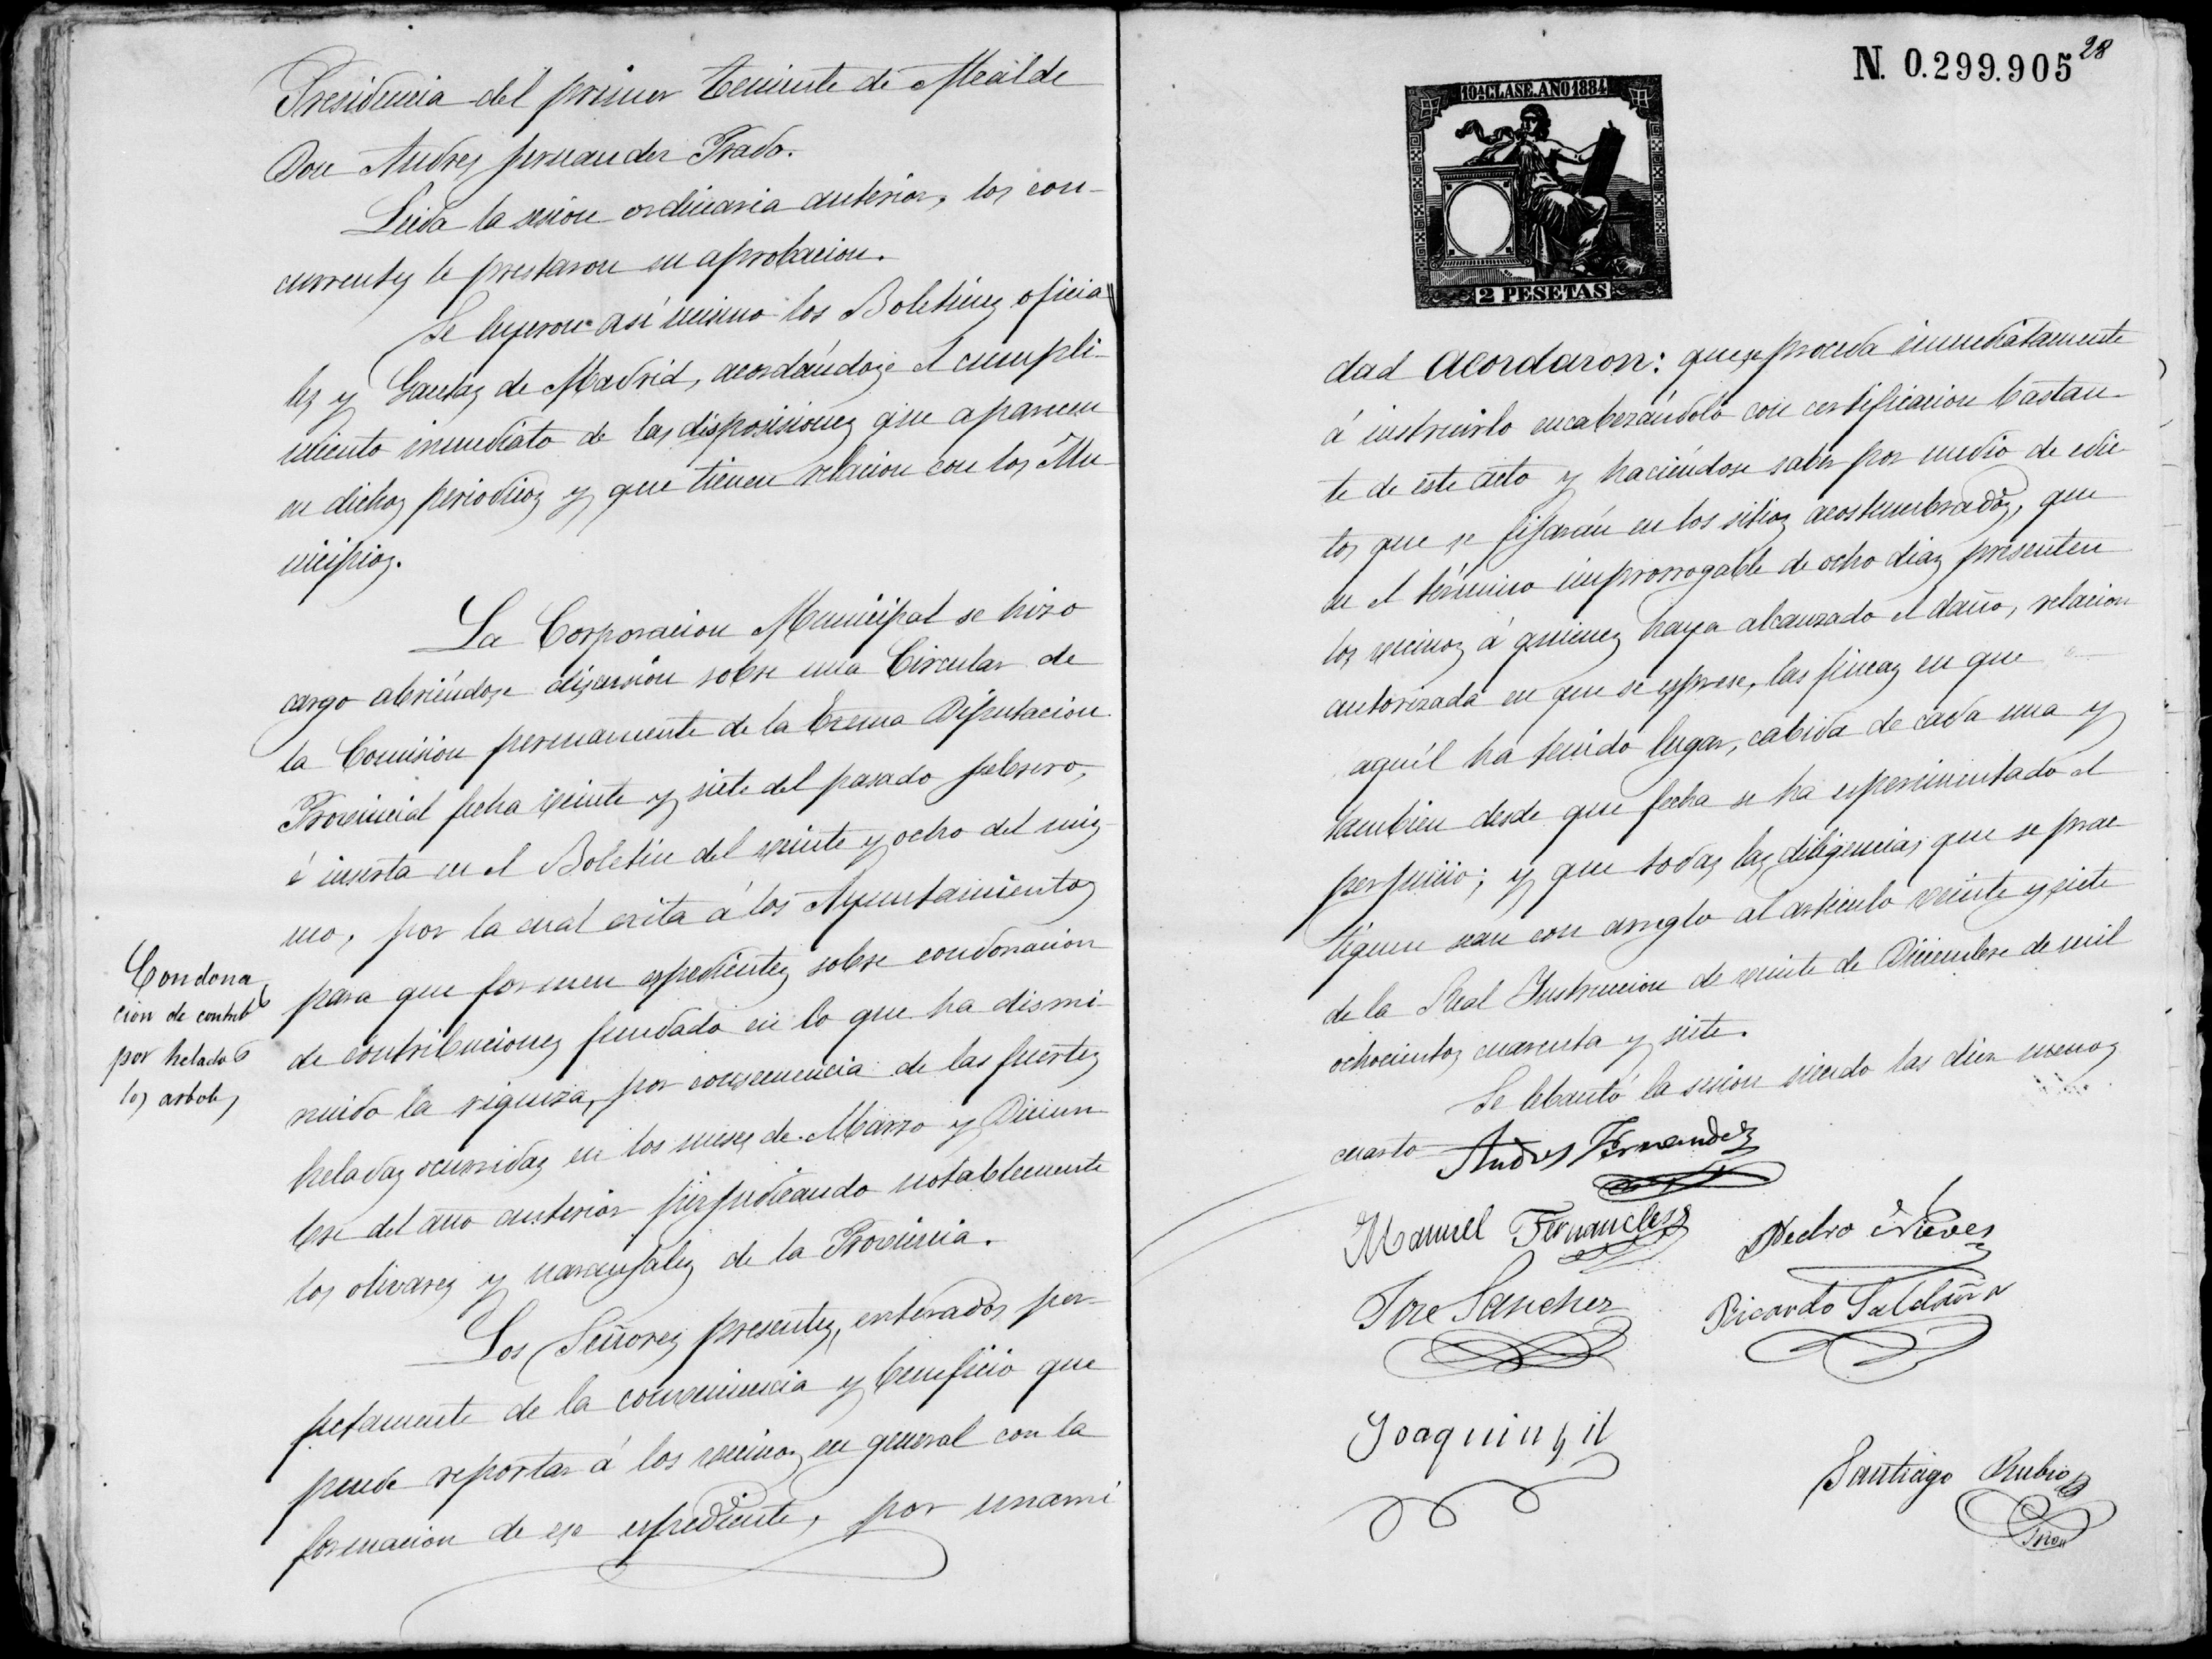 Presidencia del primer teniente de Alcalde
Don Andres fernandez Prado.
Leida la sesion ordinaria anterior, los con-
currentes le prestaron su aprobacion.
Se leyeron así mismo los Boletines oficia
les y Gacetas de Madrid, acordándose el cumpli-
miento inmediato de las disposisiones que aparecen
en dichos periodicos y que tienen relacion con los Mu-
nicipios.
La Corporacion Municipal se hizo
cargo abriéndose discusion sobre una Circular de
la Comision permanente de la Exema Diputacion
Provincial fecha veinte y siete del pasado febrero,
é inserta en el Boletin del veinte y ocho del mis-
mo, por la cual exita á los Ayuntamientos
para que formen espedientes sobre condonacion
de contribuciones fundado en lo que ha dismi-
nuido la riqueza, por consecuencia de las fuertes
heladas ocurridas en los meses de Marzo y Diciem-
bre del año anterior perjudicando notablemente
los olivares y naranjales de la Provincia.
Los Señores presentes, enterados per-
fectamente de la conveniencia y beneficio que
puede reportar á los vecinos en general con la
formacion de ese espediente, por unami
Condona
cion de contrib
por helado
los arboles
N. 0.299.905
28
10ª CLASE. AÑO 1884
2 PESETAS
dad Acordaron: que se proceda inmediatamente
á instruirlo encabezándolo con certificacion bastan-
te de este acto y haciéndose saber por medio de edic-
tos que se fijarán en los sitios acostumbrados, que
en el término improrrogable de ocho dias presenten
los vecinos á quienes haya alcanzado el daño, relacion
autorizada en que se esprese, las fincas en que
aquél ha tenido lugar, cabida de cada una y
tambien desde que fecha se ha esperimentado el
perjuicio; y que todas las diligencias que se prac
tiquen sean con arreglo al articulo veinte y siete
de la Real Instruccion de veinte de Diciembre de mil
ochocientos cuarenta y siete.
Se lebantó la sesion siendo las diez menos
cuarto
Andres Fernandez
Manuel Fernandez
Pedro Nieves
Jose Sanchez
Ricardo Saldaña
Joaquin gil
Santiago Rubio
Srio